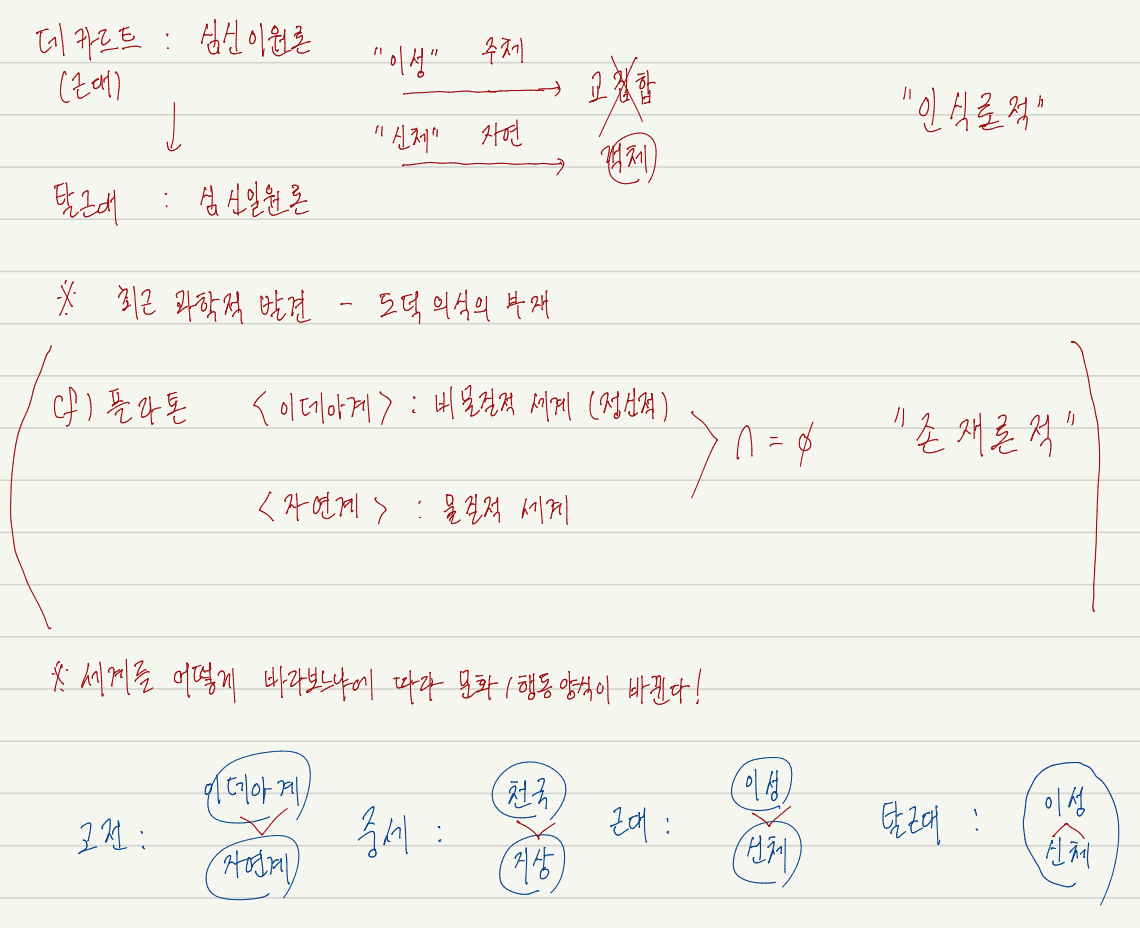 데카르트 : 심신이원론 "이성" 주체 → 교집합
(근대) "신체" 자연 → 객체 "인식론적"
↓
탈근대 : 심신일원론
※ 최근 과학적 발견 - 도덕 의식의 부재
cf) 플라톤 <이데아계> : 비물질적 세계 (정신적)
∩ = ∅ "존재론적"
<자연계> : 물질적 세계
※ 세계를 어떻게 바라보느냐에 따라 문화/행동양식이 바뀐다!
고전 : 이데아계 자연계
중세 : 천국 지상
근대 : 이성 신체
탈근대 : 이성 신체